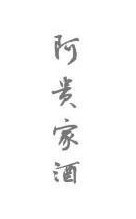 阿贵家酒